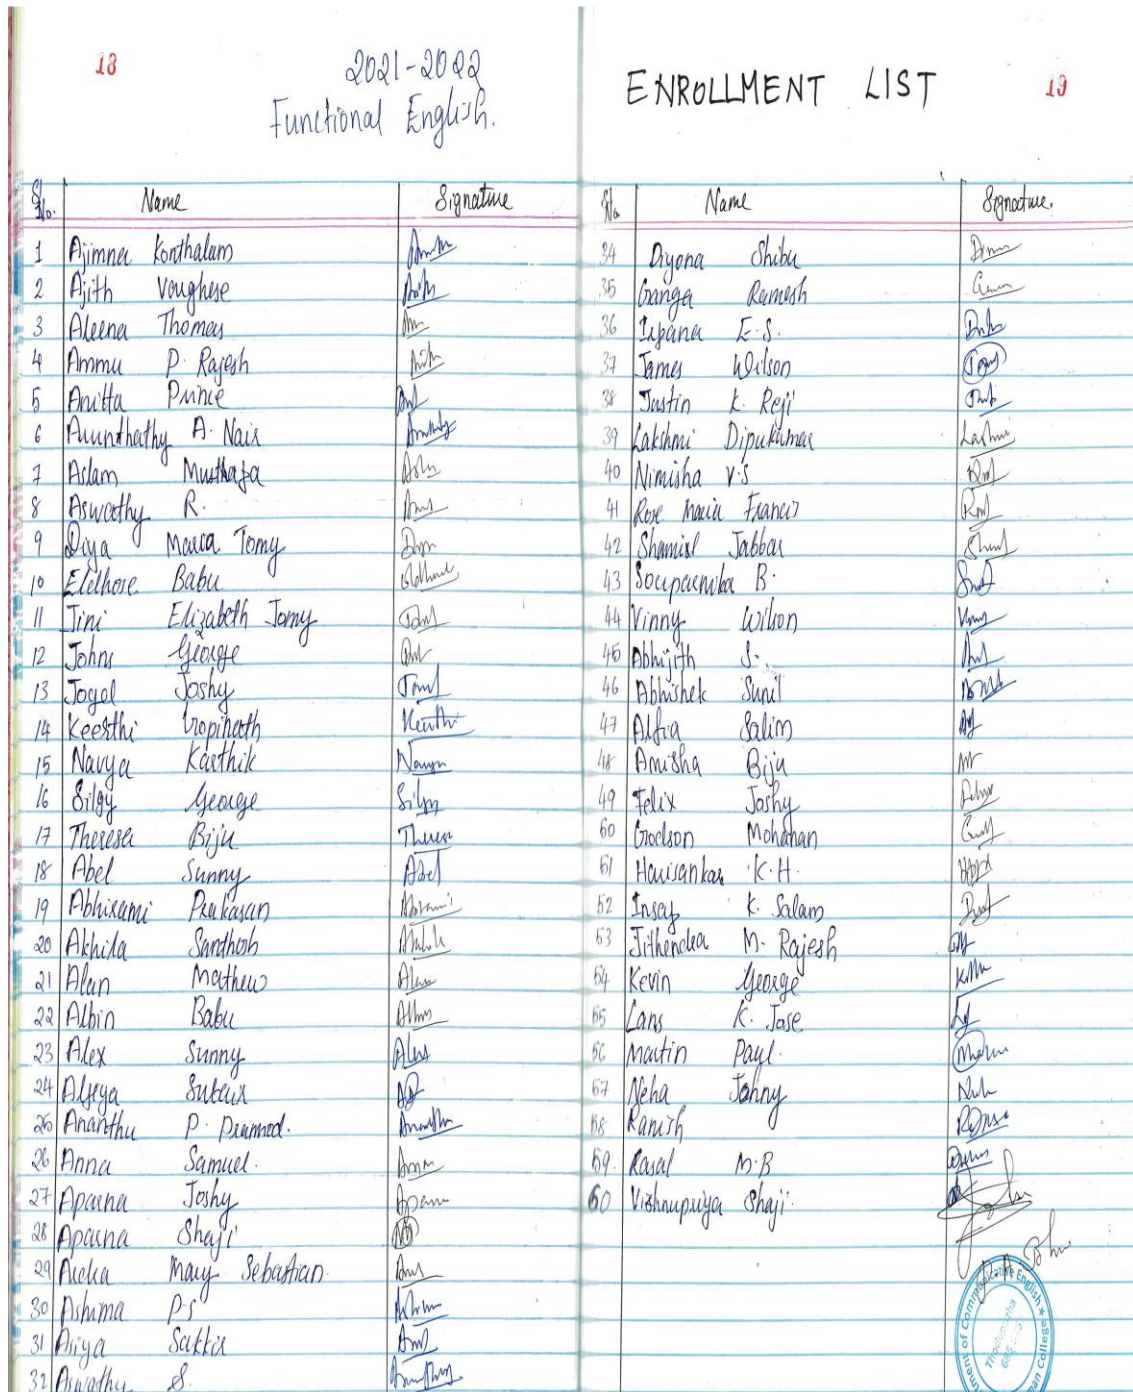 18
2021-2022
Functional English.
Sl No. Name Signature
1 Ajimna Konthalam
2 Ajith Varghese
3 Aleena Thomas
4 Ammu P. Rajesh
5 Anitta Prince
6 Arunthathy A. Nair
7 Aslam Musthafa
8 Aswathy R.
9 Diya Maria Tomy
10 Eldhose Babu
11 Jini Elizabeth Jomy
12 Johns George
13 Joyal Joshy
14 Keerthi Gopinath Keerthi
15 Navya Karthik Navya
16 Silgy George Silgy
17 Theresa Biju
18 Abel Sunny Abel
19 Abhirami Prakasan
20 Akhila Santhosh
21 Alan Mathew
22 Albin Babu
23 Alex Sunny Alex
24 Alfiya Subair
25 Ananthu P. Pramod.
26 Anna Samuel.
27 Aparna Joshy
28 Aparna Shaji
29 Archa Mary Sebastian.
30 Ashima P.S
31 Asiya Sakkir
32 Aswathy S.
ENROLLMENT LIST 19
No Name Signature.
34 Diyona Shibu
35 Ganga Ramesh
36 Irfana E.S.
37 James Wilson
38 Justin K. Reji
39 Lakshmi Dipukumar
40 Nimisha V.S
41 Rose Maria Francis
42 Shamil Jabbar
43 Souparnika B.
44 Vinny Wilson
45 Abhijith S.
46 Abhishek Sunil
47 Alfia Salim
48 Anisha Biju
49 Felix Joshy
50 Godson Mohanan
51 Harisankar K.H.
52 Insaf K. Salam
53 Jithendra M. Rajesh
54 Kevin George
55 Lans K. Jose
56 Martin Payl.
57 Neha Johny
58 Ramish
59. Rasal M.B
60 Vishnupriya Shaji.
Communicative English
Thodupuzha